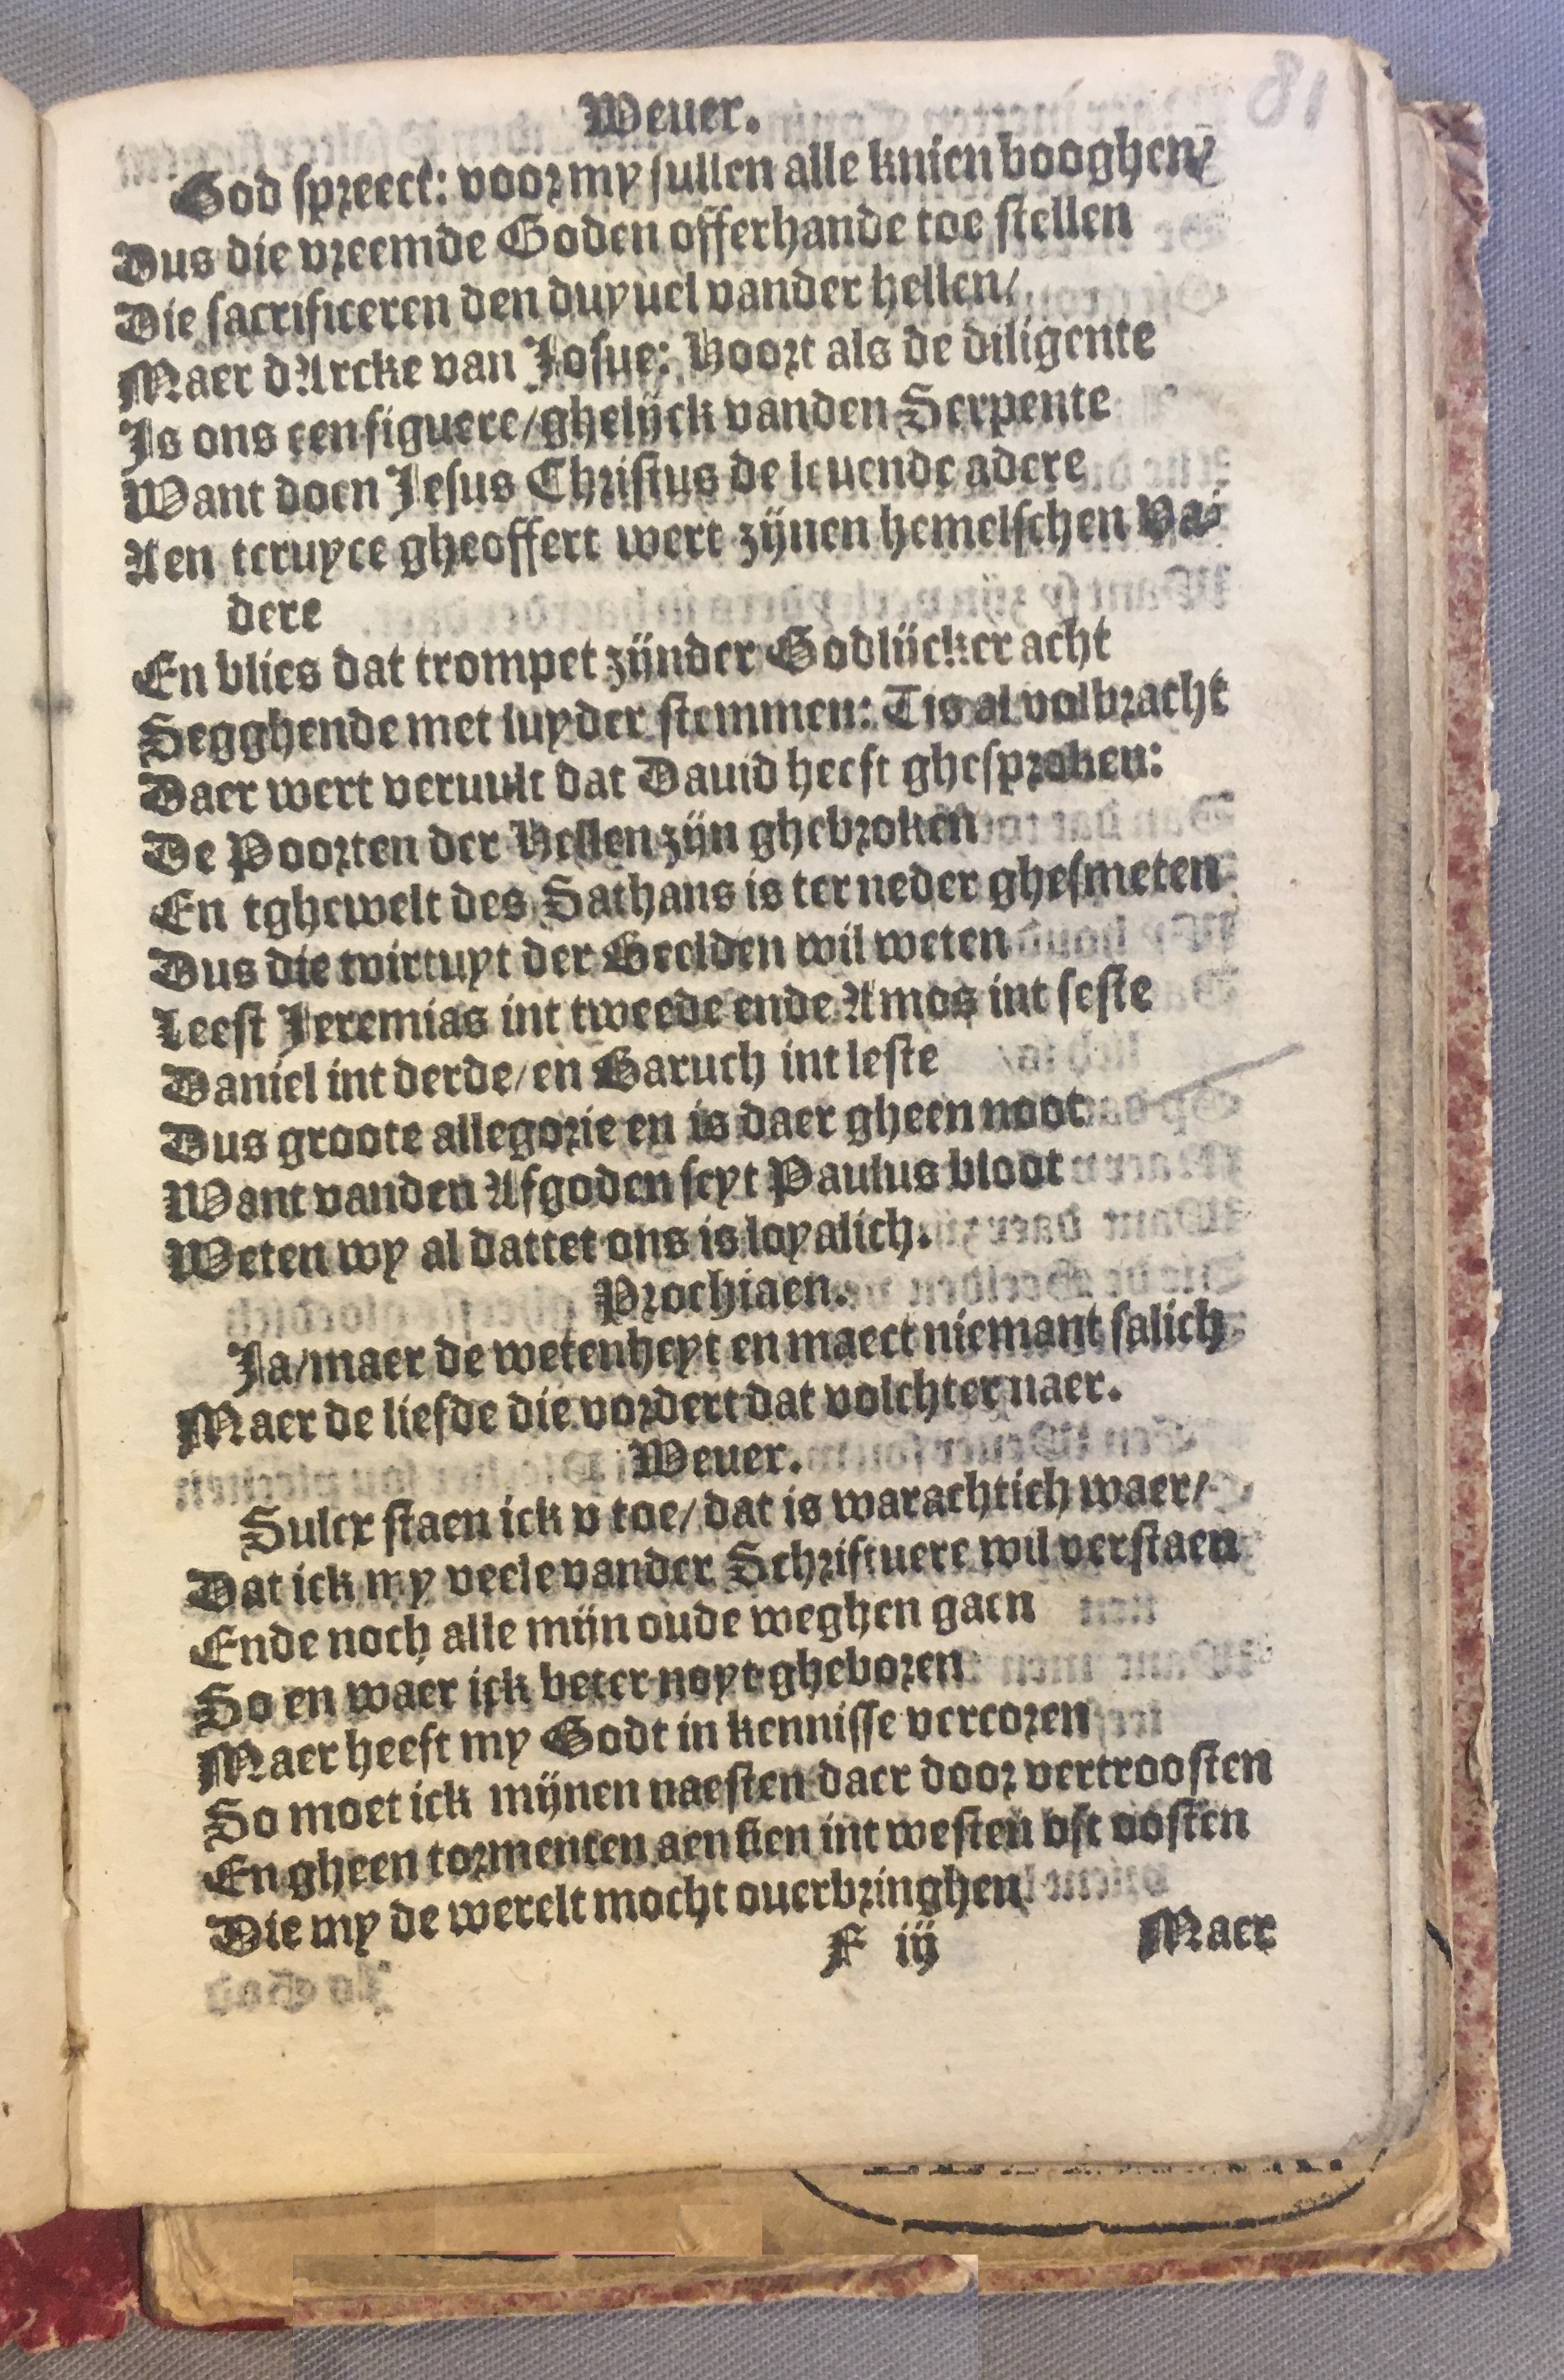 81
Weuer.
God spreect: voor my sullen alle knien booghen/
Dus die vreemde Goden offerhande toe stellen
Die sacrificeren den duyuel vander hellen/
Maer dArcke van Josue: Hoort als de diligente
Is ons een figuere/ghelijck vanden Serpente
Want doen Jesus Christus de leuende adere
Aen tcruyce gheoffert wert zijnen hemelschen Va-
dere
En blies dat trompet zijnder Godlijcker acht
Segghende met luyder stemmen: Tis al volbracht
Daer wert veruult dat Dauid heeft ghesproken:
De Poorten der Hellen zijn ghebroken
En tghewelt des Sathans is ter neder ghesmeten
Dus die virtuyt der Beelden wil weten
Leest Jeremias int tweede ende Amos int seste
Daniel int derde/en Baruch int leste
Dus groote allegorie en is daer gheen noot
Want vanden Afgoden seyt Paulus bloot
Weten wy al dattet ons is loyalich.
Prochiaen.
Ja/maer de wetenheyt en maect niemant salich
Maer de liefde die vordert dat volchter naer.
Weuer.
Sulcx staen ick v toe/dat is warachtich waer/
Dat ick my veele vander Schriftuere wil verstaen
Ende noch alle mijn oude weghen gaen
So en waer ick beter noyt gheboren
Maer heeft my Godt in kennisse vercoren
So moet ick mijnen naesten daer door vertroosten
En gheen tormenten aensien int westen oft oosten
Die my de werelt mocht ouerbringhen
F iij Maer